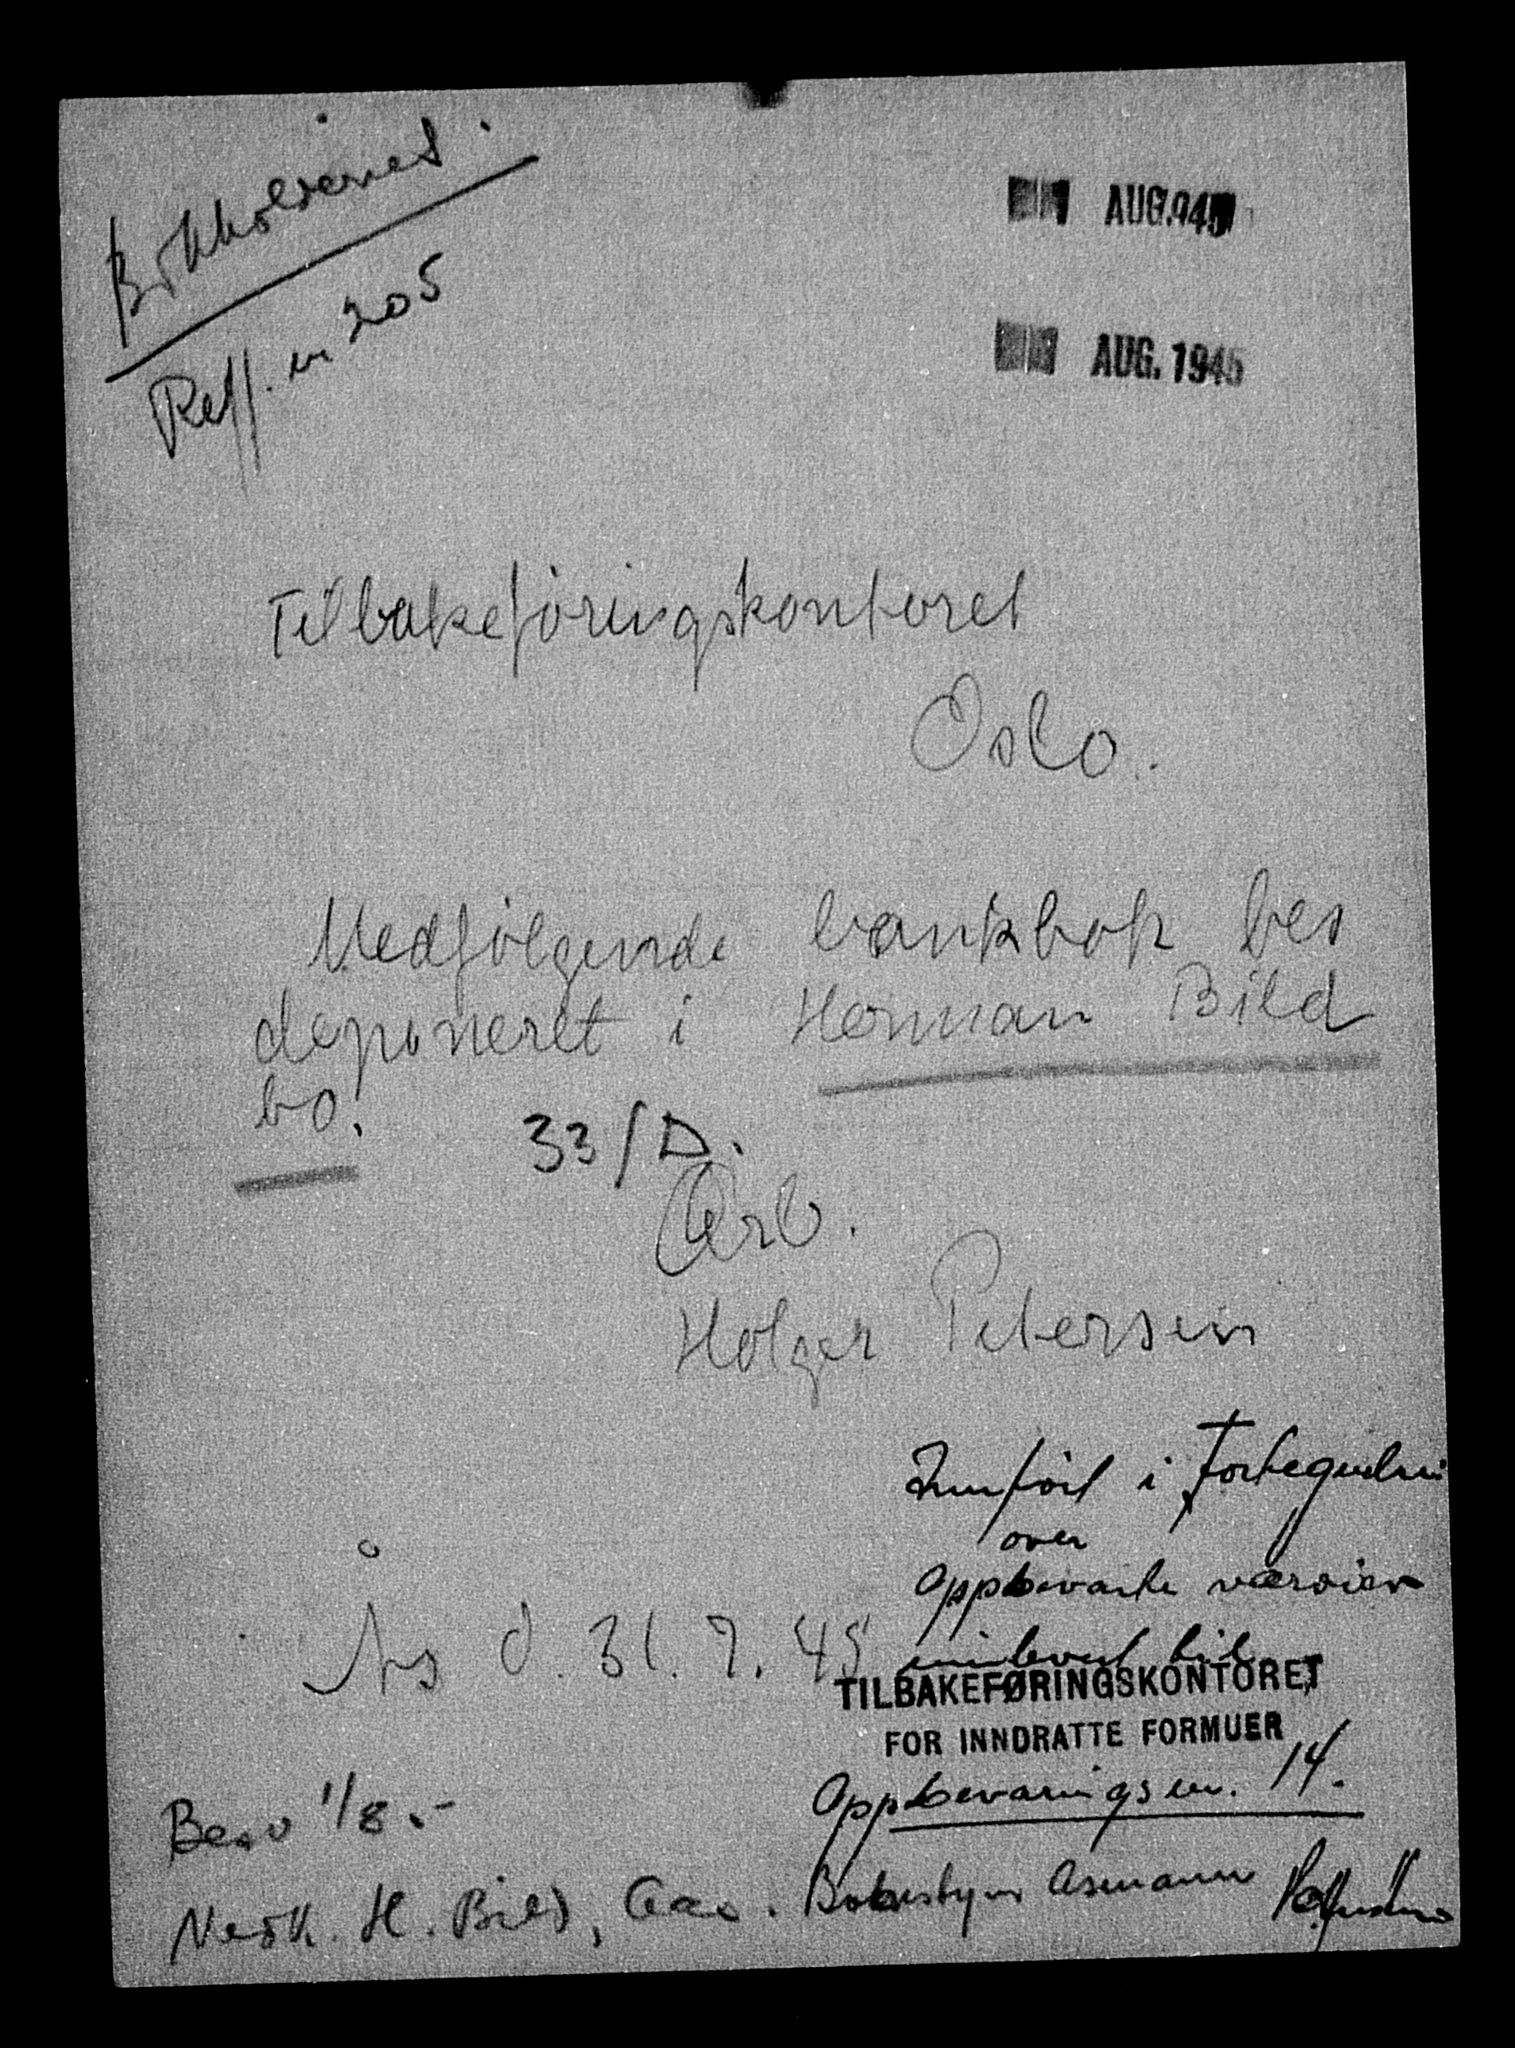 Bokholderiet.
Reff. nr 205
AUG. 945
AUG. 1945
Tilbakeføringskontoret
Oslo.
Medfølgende bankbok bes
deponeret i Herman Bild
bo.
33/D.
Ærb.
Holger Petersen
Innført i Fortegnelsen
over
oppbevarte værdier
innlevert til
Ås d. 31.7.45
TILBAKEFØRINGSKONTORET
FOR INNDRATTE FORMUER
Oppbevaringsnr. 14.
Besv 1/8.-
Medh. H. Bild, Aas. Bobestyrer Asmann